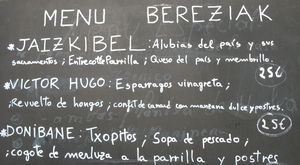 MENU BEREZIAK
*JAIZKIBEL: Alubias del país y sus
sacramentos; Entrecotte Parrilla; Queso del país y membrillo.
25€
*VICTOR HUGO: Esparragos vinagreta;
Revuelto de hongos; confit de canard con manzana dulce y postres.
25€
*DONIBANE: Txopitos; Sopa de pescado;
cogote de merluza a la parrilla y postres